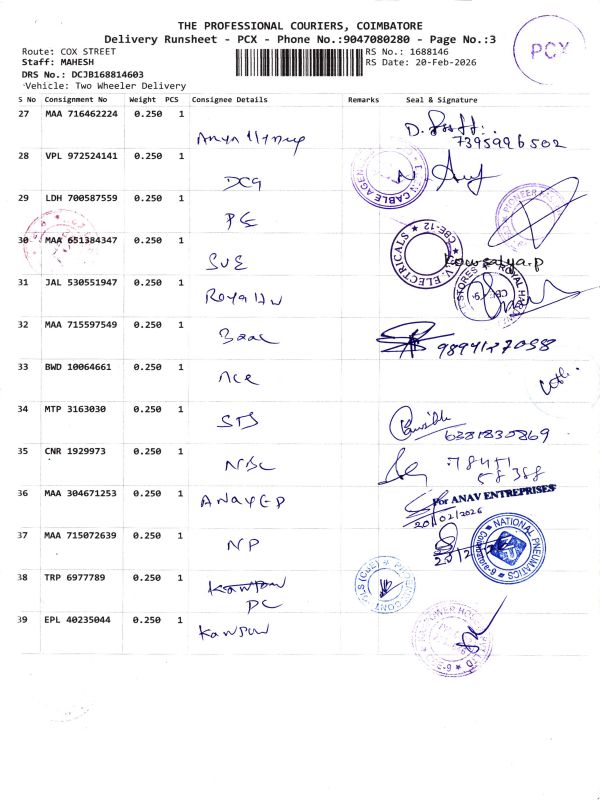 THE PROFESSIONAL COURIERS, COIMBATORE
Delivery Runsheet - PCX - Phone No.:9047080280 - Page No.:3
PCX
Route: COX STREET
RS No.: 1688146
Staff: MAHESH
RS Date: 20-Feb-2026
DRS No.: DCJB168814603
Vehicle: Two Wheeler Delivery
S No Consignment No Weight PCS Consignee Details Remarks Seal & Signature
27 MAA 716462224 0.250 1
7395996502
28 VPL 972524141 0.250 1
DCG
29 LDH 700587559 0.250 1
PE
30 MAA 651384347 0.250 1
SVE
V. ELECTRICALS ★ CBE-12
Kowsalya.P
31 JAL 530551947 0.250 1
32 MAA 715597549 0.250 1
9894127098
33 BWD 10064661 0.250 1
Ace
34 MTP 3163030 0.250 1
STS
6381830869
35 CNR 1929973 0.250 1
NBC
36 MAA 304671253 0.250 1
ANAV EP
For ANAV ENTREPRISES
20/02/2026
37 MAA 715072639 0.250 1
NP
NATIONAL PNEUMATICS
38 TRP 6977789 0.250 1
PC
39 EPL 40235044 0.250 1